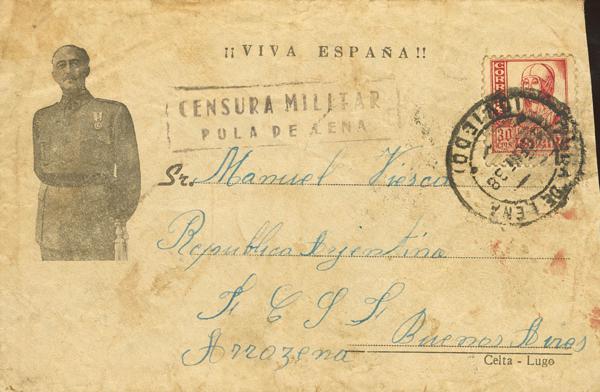 ¡¡VIVA ESPAÑA!!
CORREOS
30
CENSURA MILITAR
POLA DE LENA
POLA DE LENA (OVIEDO)
Sr. Manuel Viesca
Republica Argentina
F C S S
Buenos Aires
Arrozena
Celta - Lugo